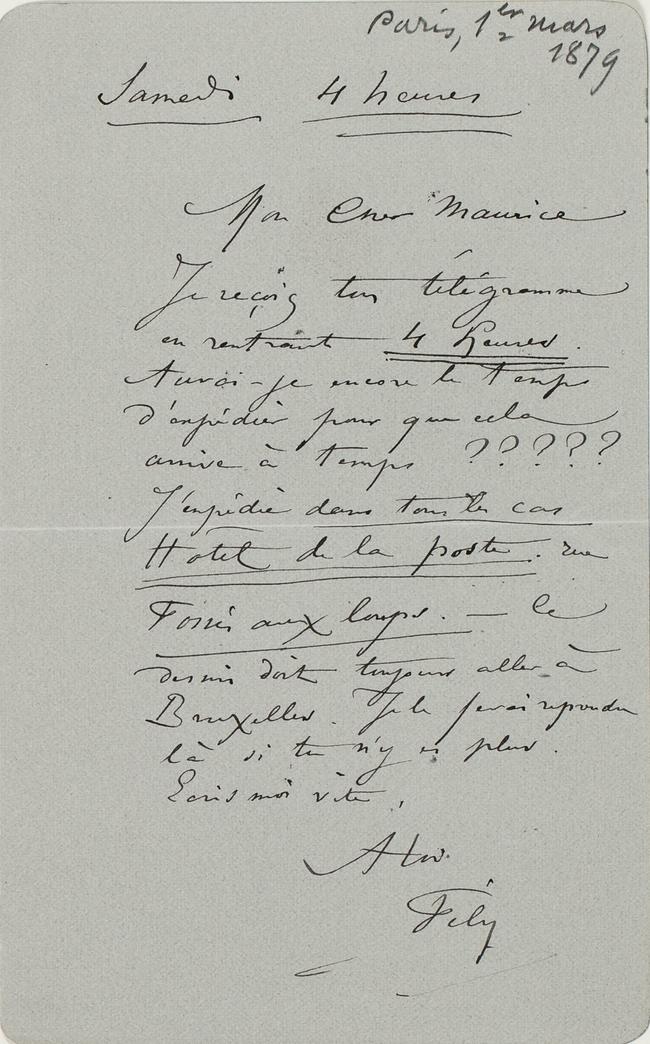 Paris, 1er mars
1879
Samedi 4 heures
Mon Cher Maurice
Je reçois ton télégramme
en rentrant 4 heures.
Aurai-je encore le temps
d'expédier pour que cela
arrive à temps ?????
J'expédie dans tous les cas
Hotel de la poste. rue
Fossés aux loups. — le
dessin doit toujours aller à
Bruxelles. Je le ferai reprendre
là si tu n'y es plus.
Ecris moi vite.
A toi
Fély